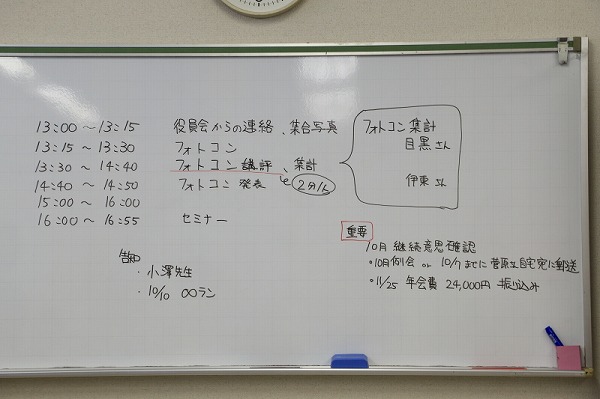 13:00 ～ 13:15 役員会からの連絡、集合写真
13:15 ～ 13:30 フォトコン
13:30 ～ 14:40 フォトコン講評、集計
14:40 ～ 14:50 フォトコン 発表 2分/人
15:00 ～ 16:00
16:00 ～ 16:55 セミナー
フォトコン集計
目黒さん
伊東さん
告知
・小澤先生
・10/10 ∞ラン
重要
10月 継続意思確認
・10月例会 or 10/7までに菅原さん自宅宛に郵送
・11/25 年会費 24,000円 振り込み